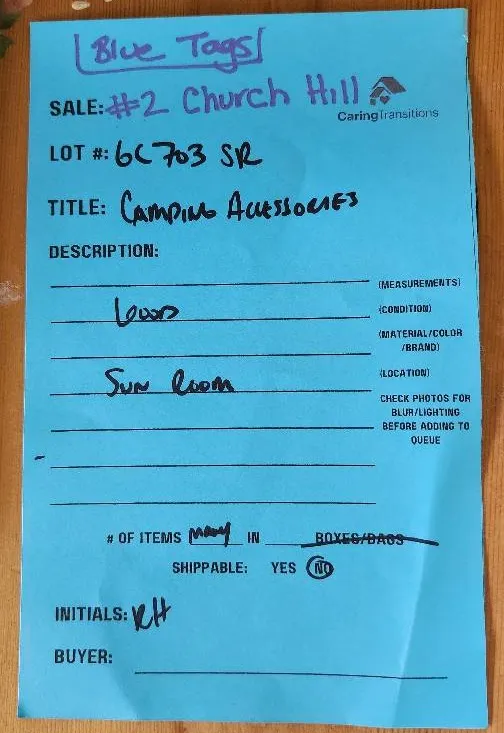 Blue Tags
SALE: #2 Church Hill
CaringTransitions
LOT #: 6C703 SR
TITLE: CAMPING ACCESSORIES
DESCRIPTION:
(MEASUREMENTS)
GOOD (CONDITION)
(MATERIAL/COLOR
/BRAND)
SUN ROOM (LOCATION)
CHECK PHOTOS FOR
BLUR/LIGHTING
BEFORE ADDING TO
QUEUE
# OF ITEMS MANY IN BOXES/BAGS
SHIPPABLE: YES NO
INITIALS: RH
BUYER: